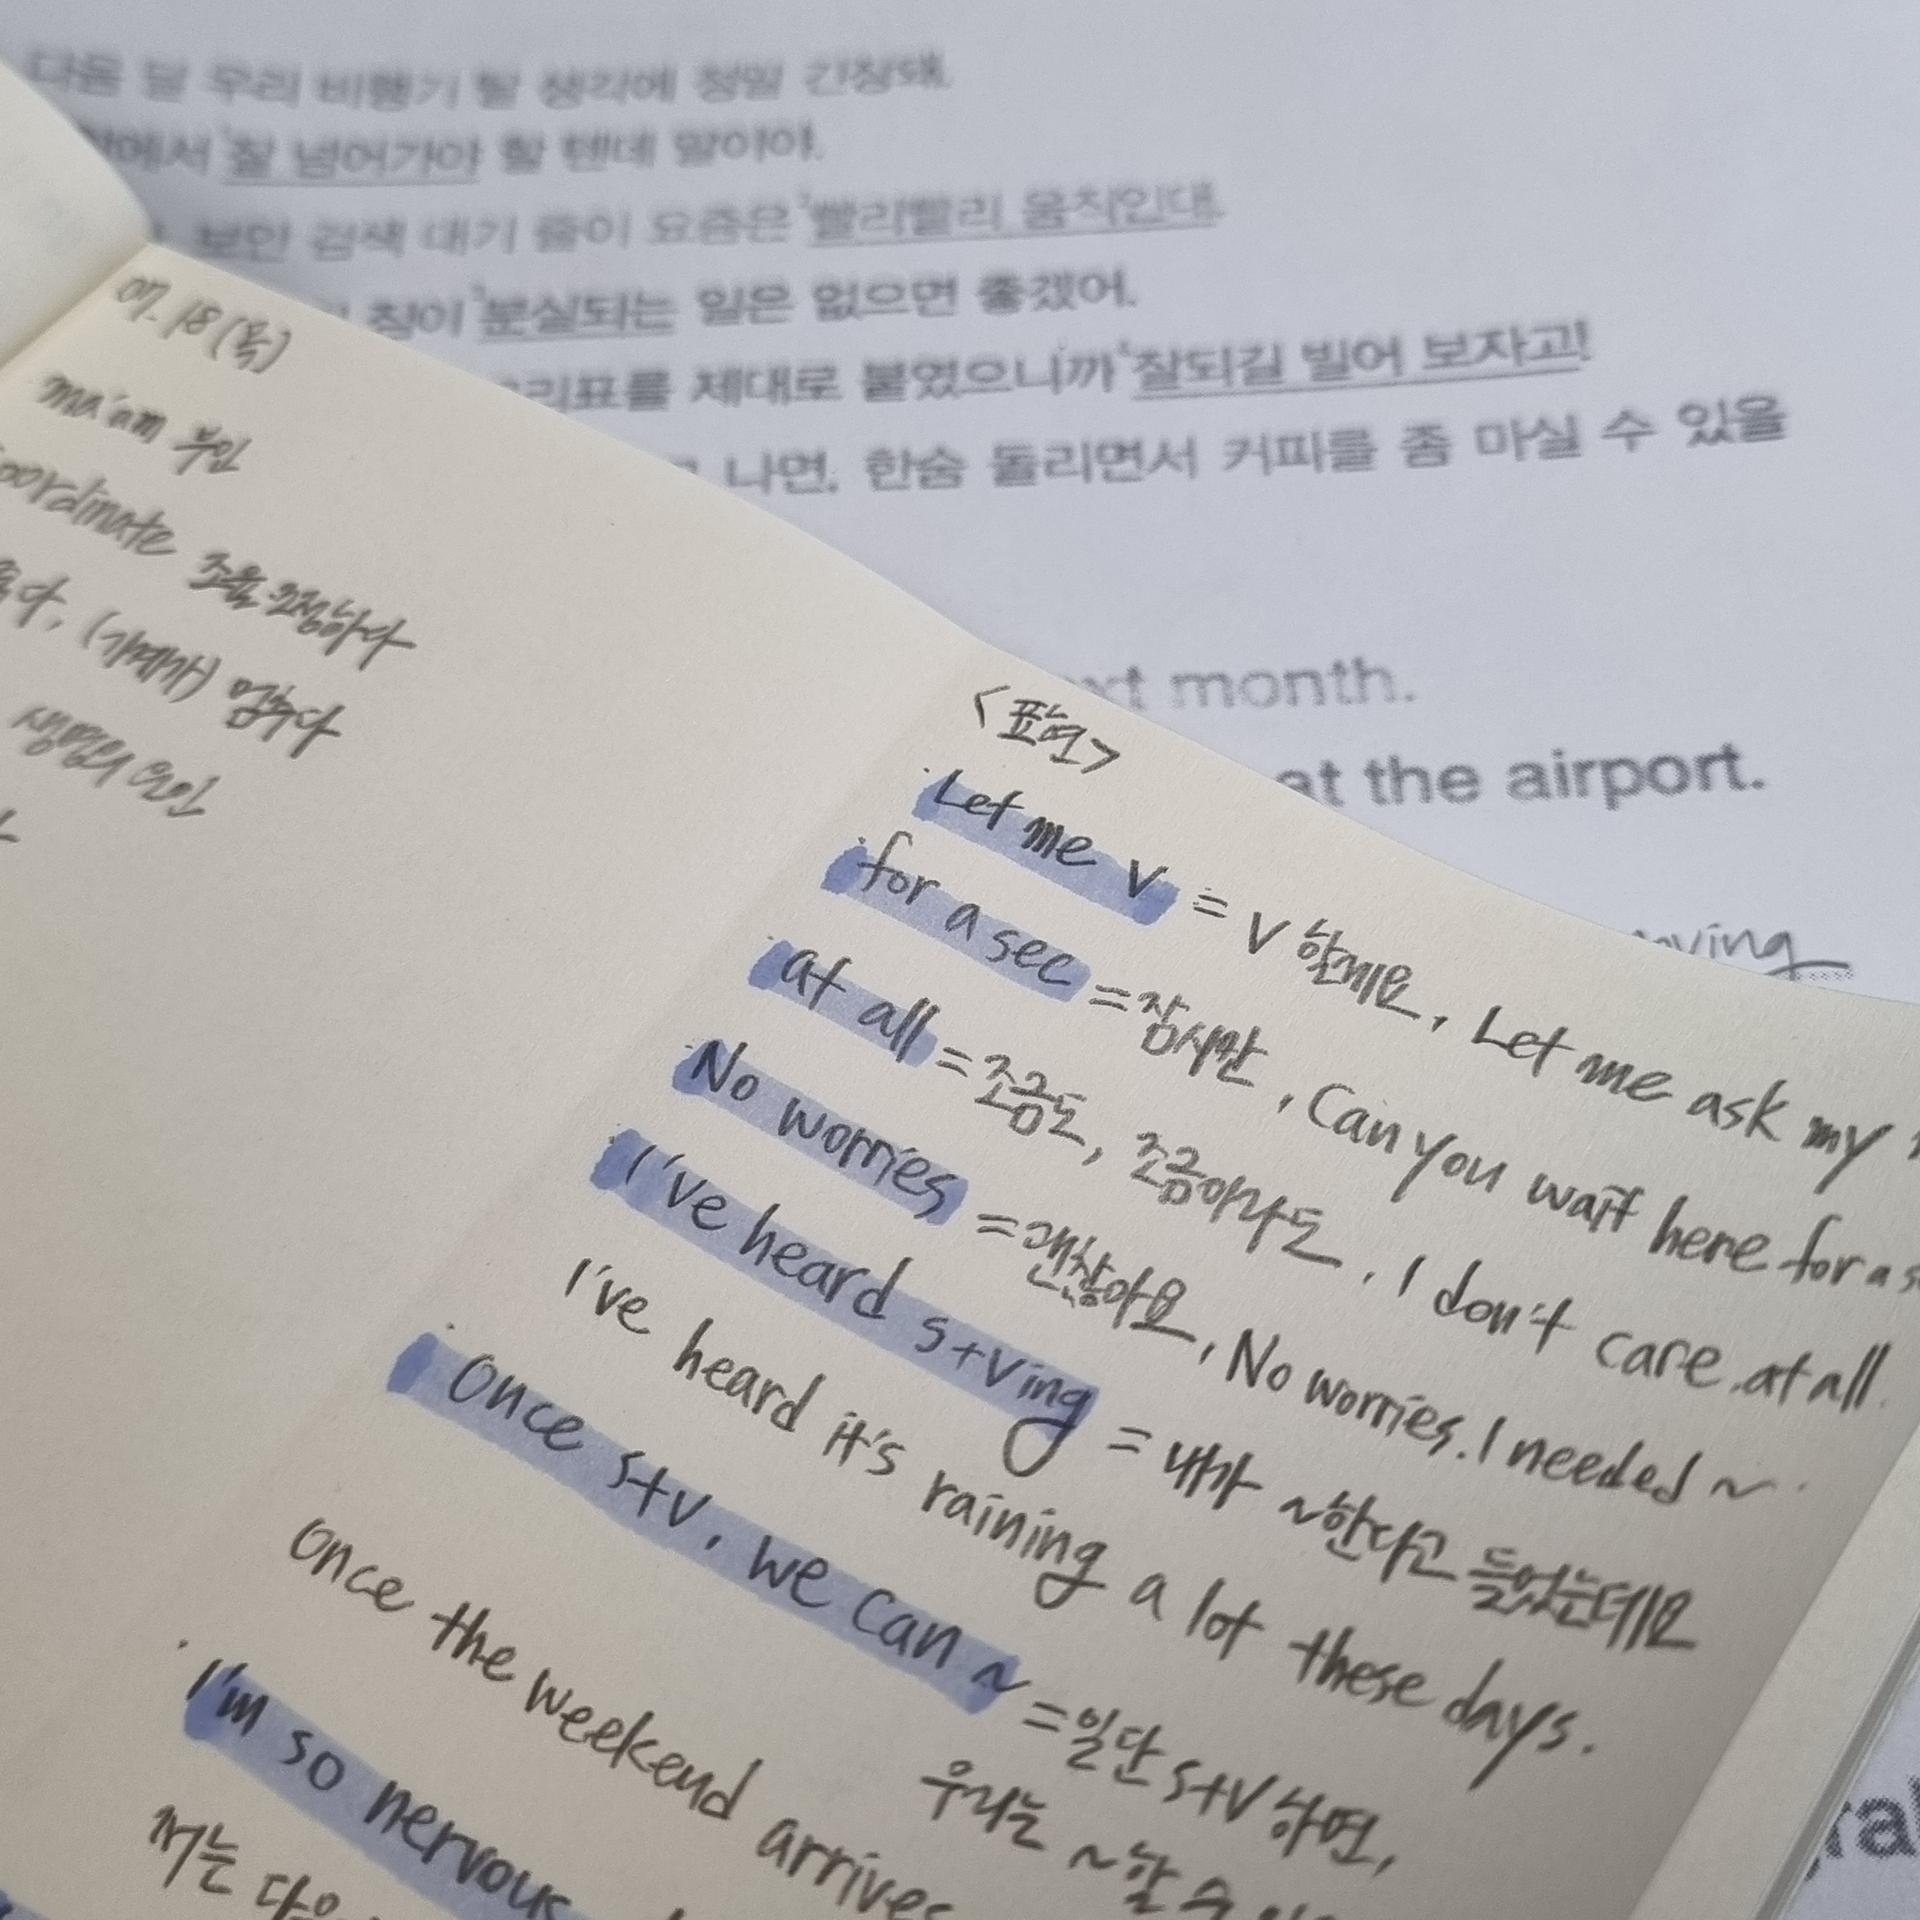 다음 달 우리 비행기 탈 생각에 정말 긴장돼.
잘 넘어가야 할 텐데 말이야.
보안 검색 대기 줄이 요즘은 ²빨리빨리 움직인대.
짐이 ³분실되는 일은 없으면 좋겠어.
제대로 붙였으니까 ⁴잘되길 빌어 보자고!
나면, 한숨 돌리면서 커피를 좀 마실 수 있을
month.
at the airport.
07. 18 (목)
ma'am 부인
조율·조정하다
(가게가) 멈추다
생명의 은인
<표현>
· Let me V = V 할게요, Let me ask my
· for a sec = 잠시만, Can you wait here for a
· at all = 조금도, 조금이라도. I don't care at all.
· No worries = 괜찮아요, No worries. I needed ~
· I've heard s+Ving = 내가 ~한다고 들었는데요
I've heard it's raining a lot these days.
· Once s+v, we can ~ = 일단 s+V 하면,
우리는 ~할 수
Once the weekend arrives
· I'm so nervous
저는